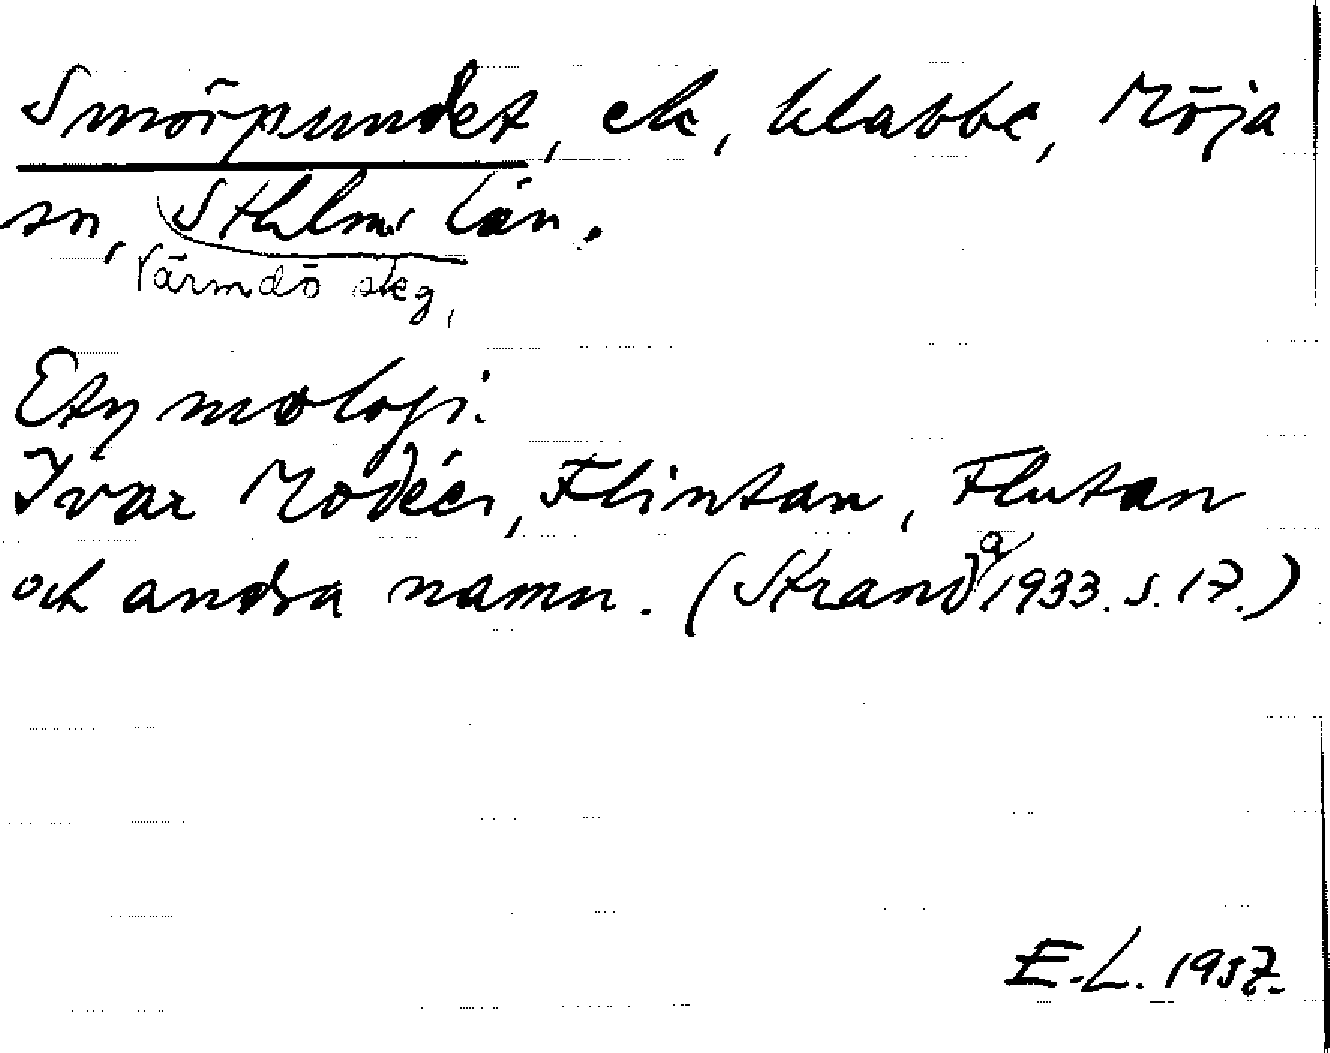 Smörpundet, ek, klabbe, Möja
sn, Sthlms län.
Värmdö skg,
Etymologi.
Ivar Modéer, Flintan, Flutan
och andra namn. (Strand 9/1933. s. 17.)
E.L. 1937.